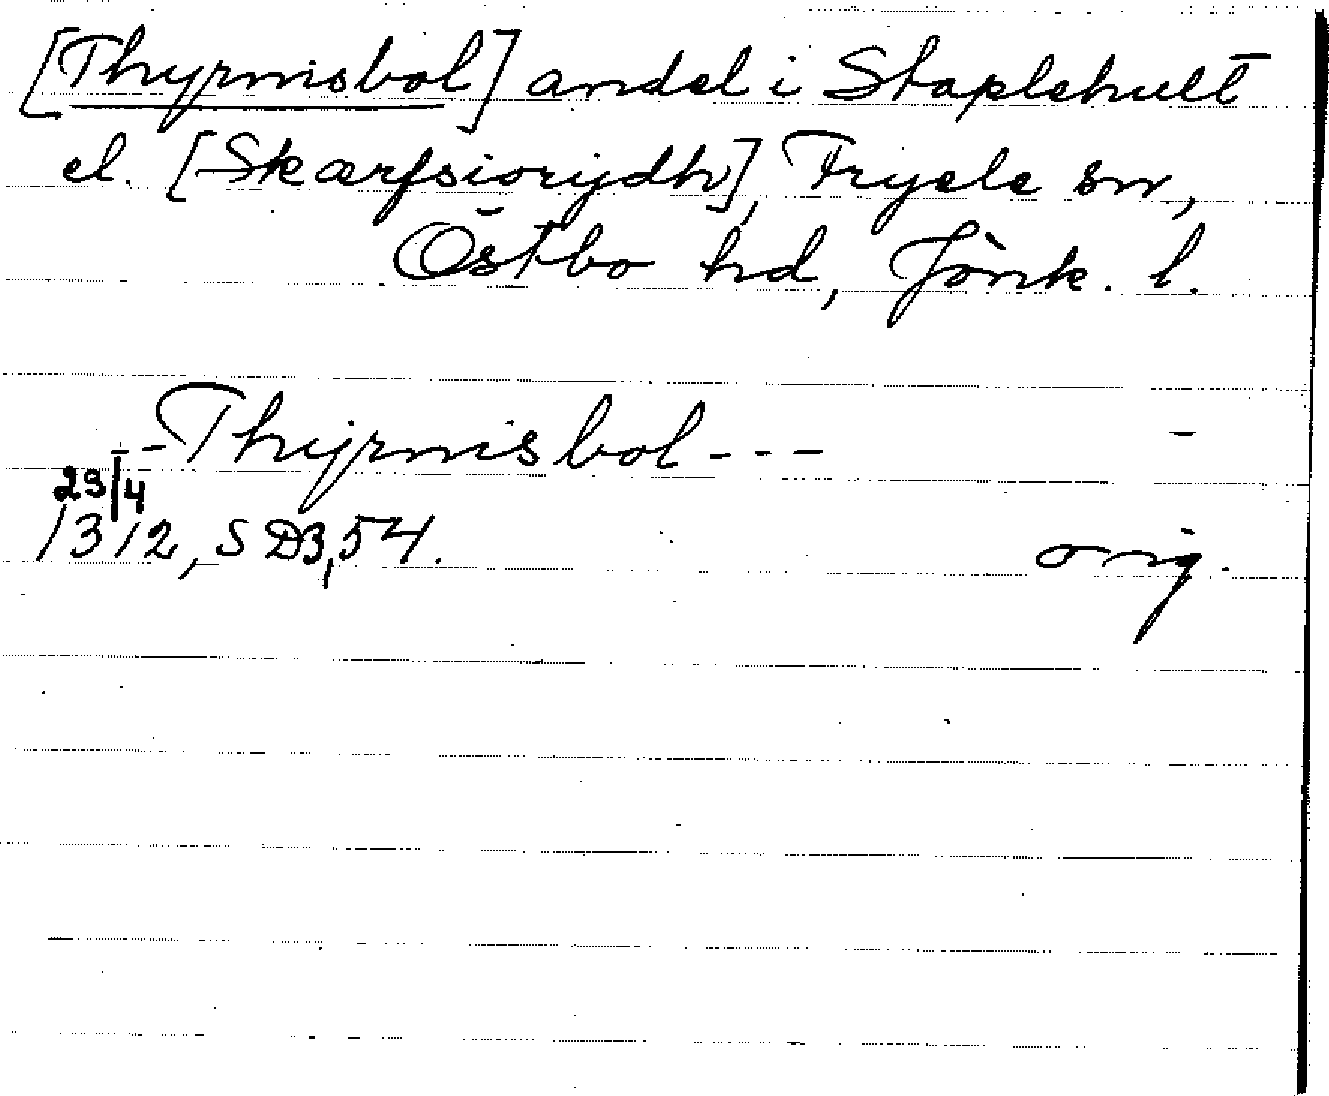 [Thyrnisbol] andel i Staplehult
el. [Skærfsiorydh], Fryele sn,
Östbo hd, Jönk. l.
--Thyrnisbol---
29/4
1312, SD3,54. orig.